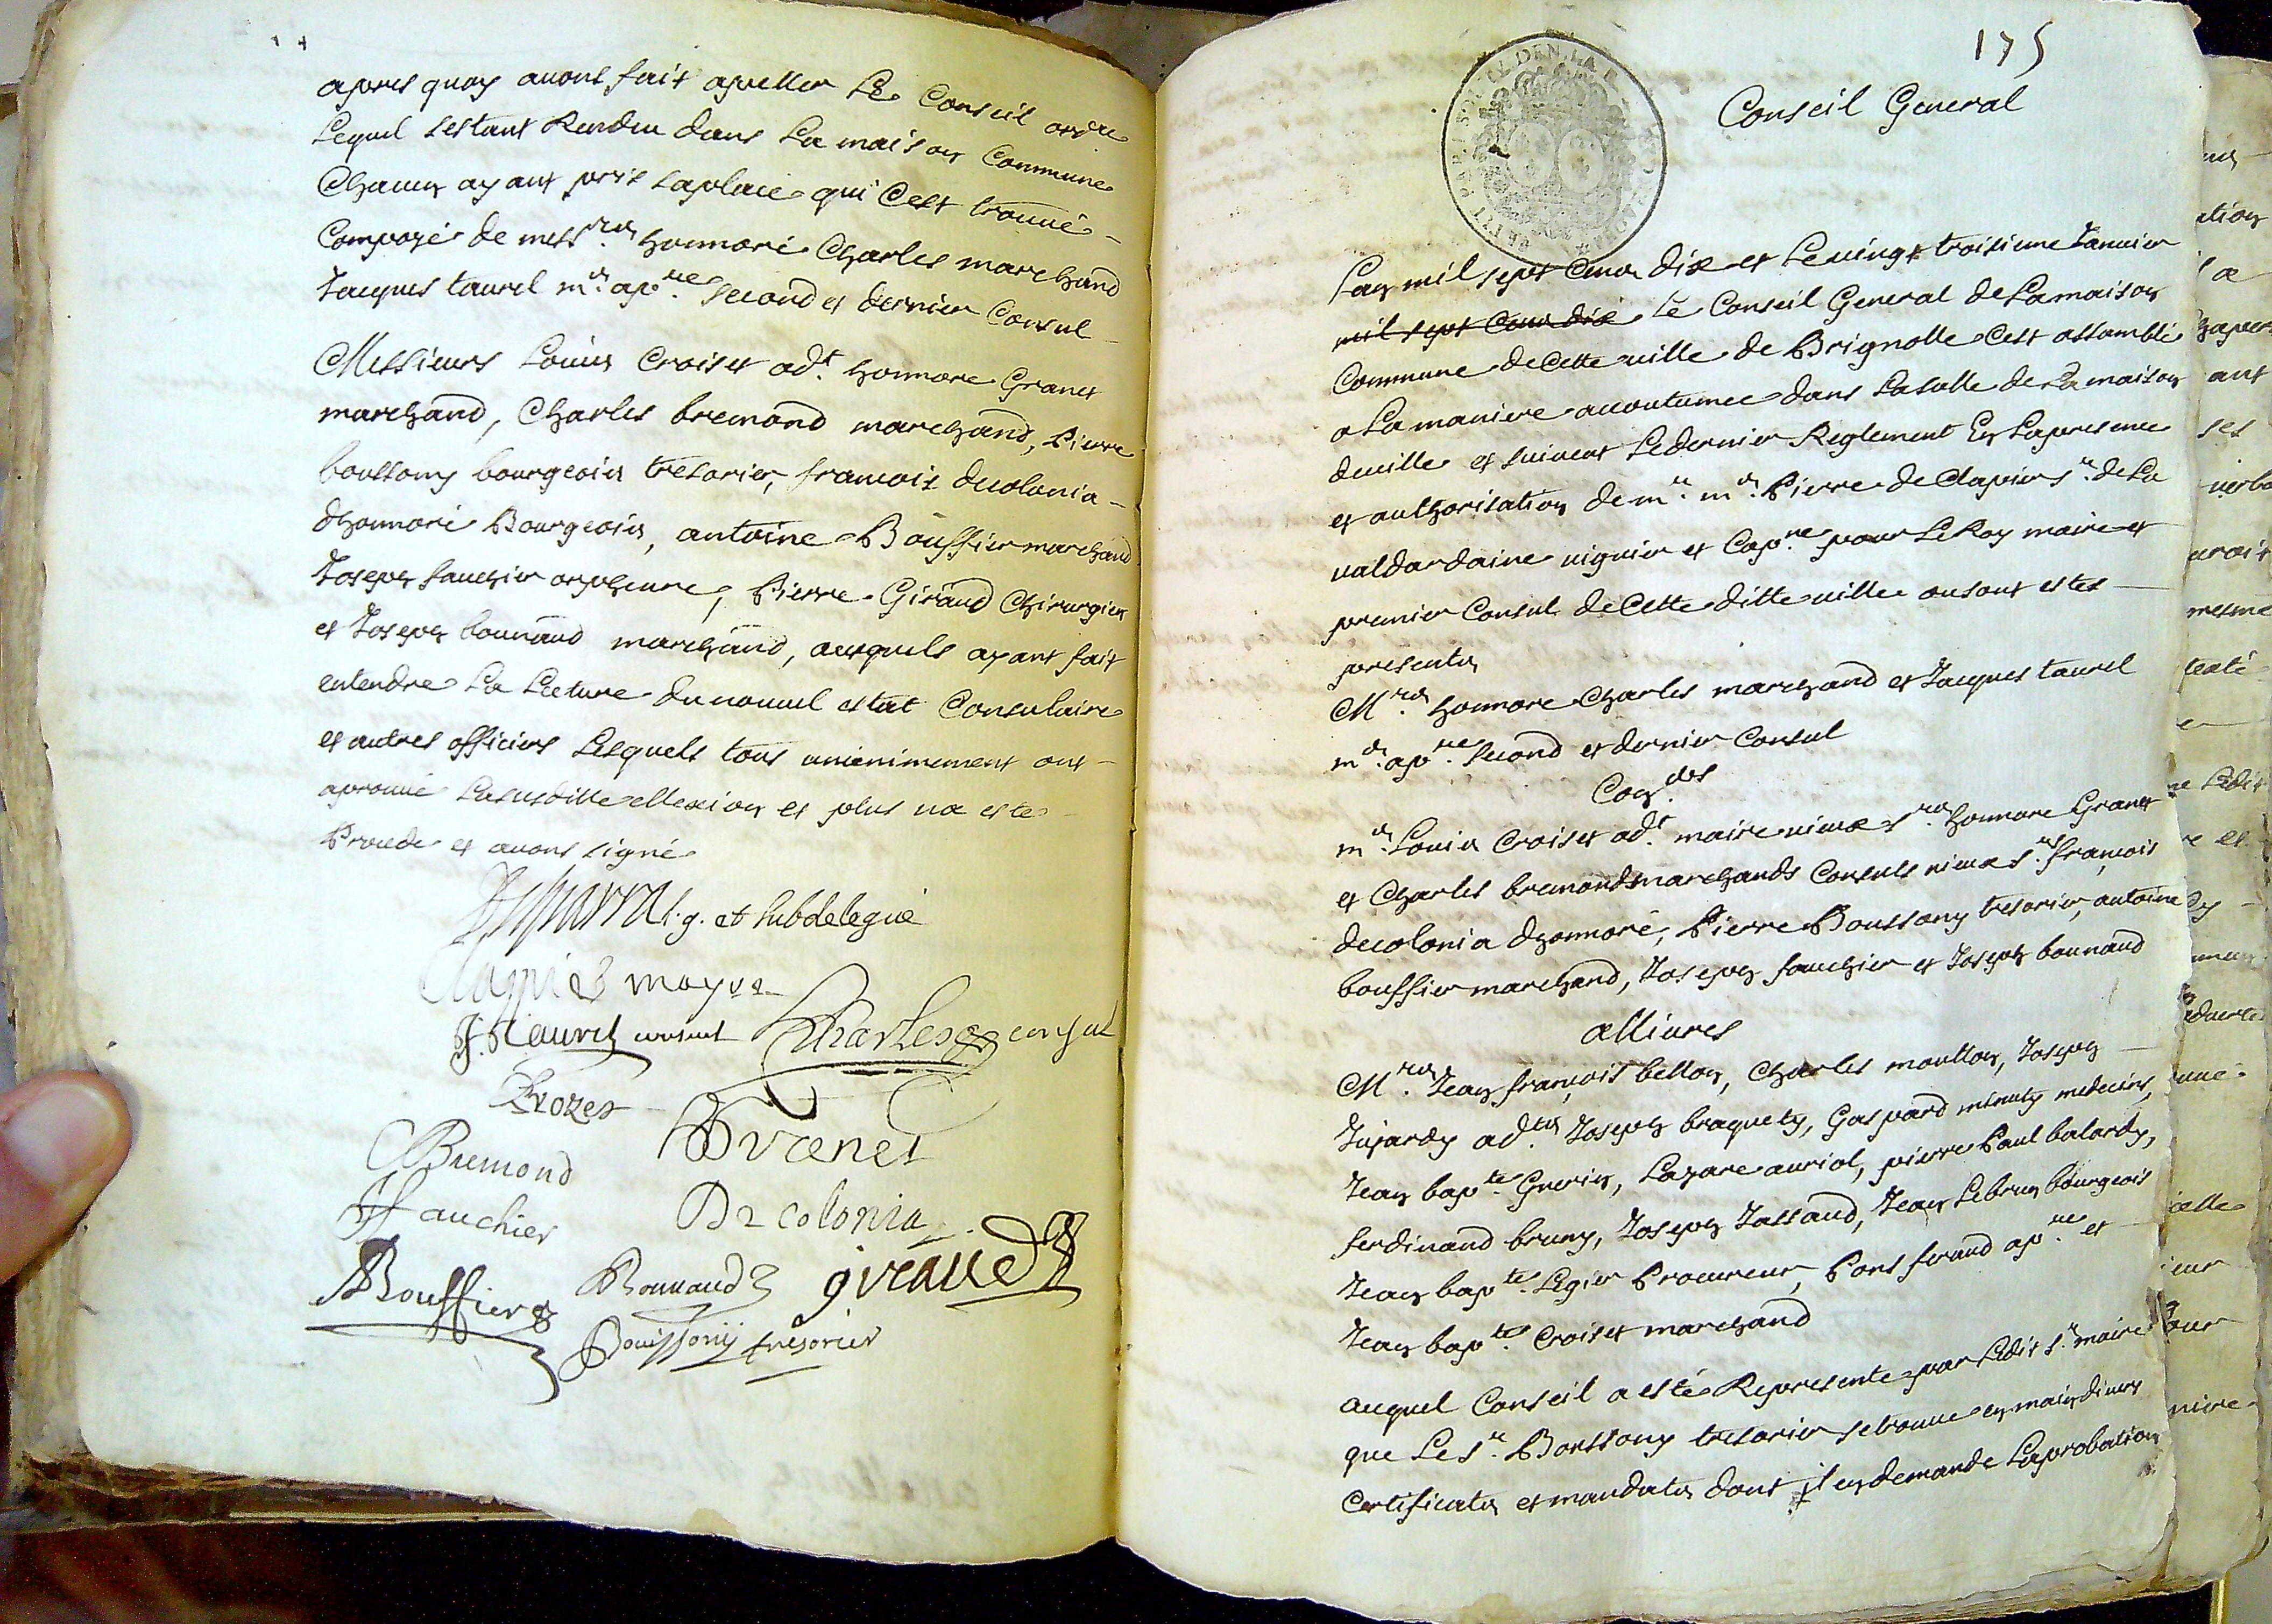 apres quoy auons fait apeller Le Conseil ordre
Lequel sestant Rendeu dans La maison Commune
Chacun ayant pris saplace qui Cest trouué
Composé de messrs. honnoré Charles marchand
Jacques taurel me. apre. second et dernier Consul
Messieurs Louis Croiset adt. honnore Granet
marchand, Charles bremond marchand, Pierre
boussony bourgeois tresorier, francois decolonia
dhonnoré Bourgeois, antoine Bouffier marchand
Joseph fauchier orpheure, Pierre Giraud Chirurgien
et Joseph bounaud marchand, ausquels ayant fait
entendre La Lecture du nouuel estat Consulaire
et autres officiers Lesquels tous unienimement ont
aprouué Lasusditte ellexion et plus na este
Procede et auons signé
l. g. et subdelegué
Clapiés mayre
J. Taurel consul Charles consul
Crozet
Bremond Granet
J fauchier De colonia
Bouffier Bounaud giraud
Bouissony tresorier
175
Conseil General
Lan mil sept Cens dix et Leuingt troisieme Januier
mil sept Cens dix Le Conseil General deLamaison
Commune deCette uille de Brignolle Cest assamblé
a La maniere accoutumee dans Lasalle de La maison
deuille et suiuent Ledernier Reglement En Lapresence
et authorisation de mr. me. Pierre de Clapiers sr. de La
ualdardaine uiguier et Capne. pour Le Roy maire et
premier Consul de Cette ditte uille ou sont estes
presents
Mrs. honnore Charles marchand et Jacques taurel
me. apre. second et dernier Consul
Conders
me. Louis Croiset adt. maire uieux srs. honnore Granet
et Charles bremond marchands Consuls uieux srs. françois
decolonia dhonnoré, Pierre Boussony tresorier, antoine
bouffier marchand, Joseph fauchier et Joseph bounaud
alliures
Mrs. Jean françois bellon, Charles moutton, Joseph
Jujardy adts. Joseph braquety, Gaspard minuty medecins,
Jean bapte. Guerin, Lazare auriol, pierre Paul balardy,
ferdinand bruny, Joseph Jassaud, Jean Lebrun bourgeois
Jean bapte. Legier Procureur, Pons feraud apre. et
Jean bapte. Croiset marchand
auquel Conseil a esté Representé par Ledit sr. maire
que Le sr. Boussony tresorier se trouue en main diuers
Certificats et mandats dont il en demande Laprobation